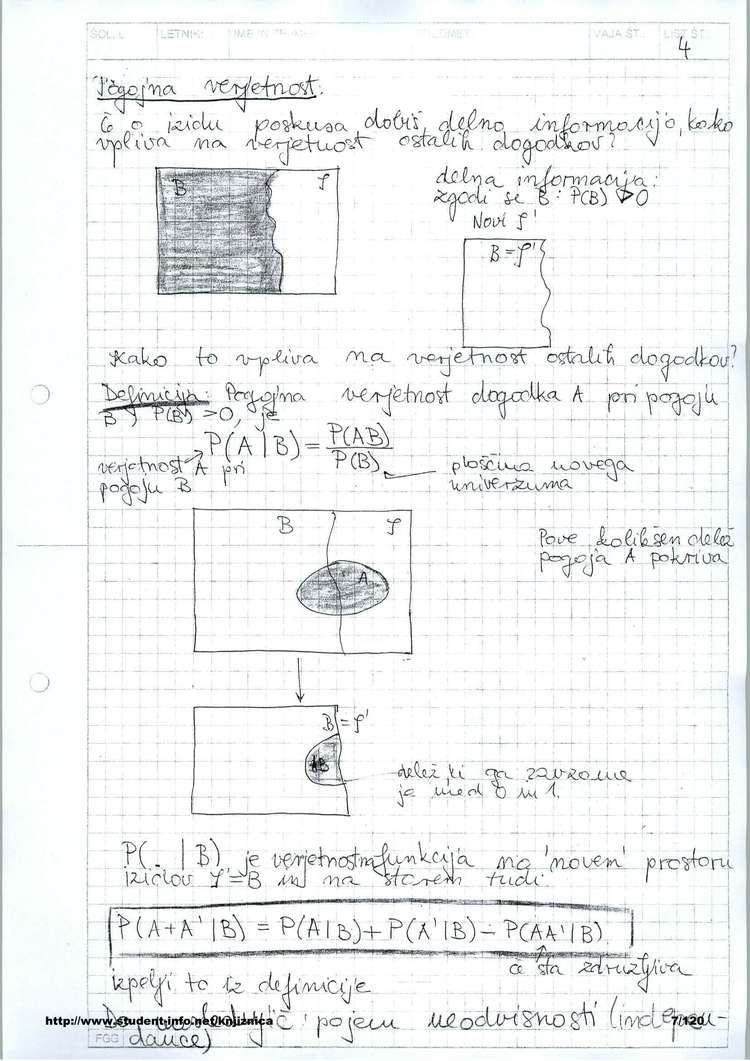 ŠOL. L. LETNIK: IME IN PRIIMEK PREDMET VAJA ŠT. LIST ŠT.
4
Pogojna verjetnost:
Če o izidu poskusa dobiš delno informacijo, kako
vpliva na verjetnost ostalih dogodkov?
B S
delna informacija:
zgodi se B : P(B) > 0
Novi S'
B = S'
Kako to vpliva na verjetnost ostalih dogodkov?
Definicija: Pogojna verjetnost dogodka A pri pogoju
B, P(B) > 0, je
P(A|B) = P(AB) / P(B)
verjetnost A pri
pogoju B
ploščina novega
univerzuma
B S
A
Pove kolikšen delež
pogoja A pokriva
B = S'
AB
delež ki ga zavzame
je med 0 in 1.
P(. | B) je verjetnostna funkcija na 'novem' prostoru
izidov S' = B in na starem tudi.
P(A+A'|B) = P(A|B) + P(A'|B) - P(AA'|B)
če sta združljiva
izpelji to iz definicije
pojem neodvisnosti (indepen-
dance)
http://www.student-info.net/knjiznica
7/120
FGG